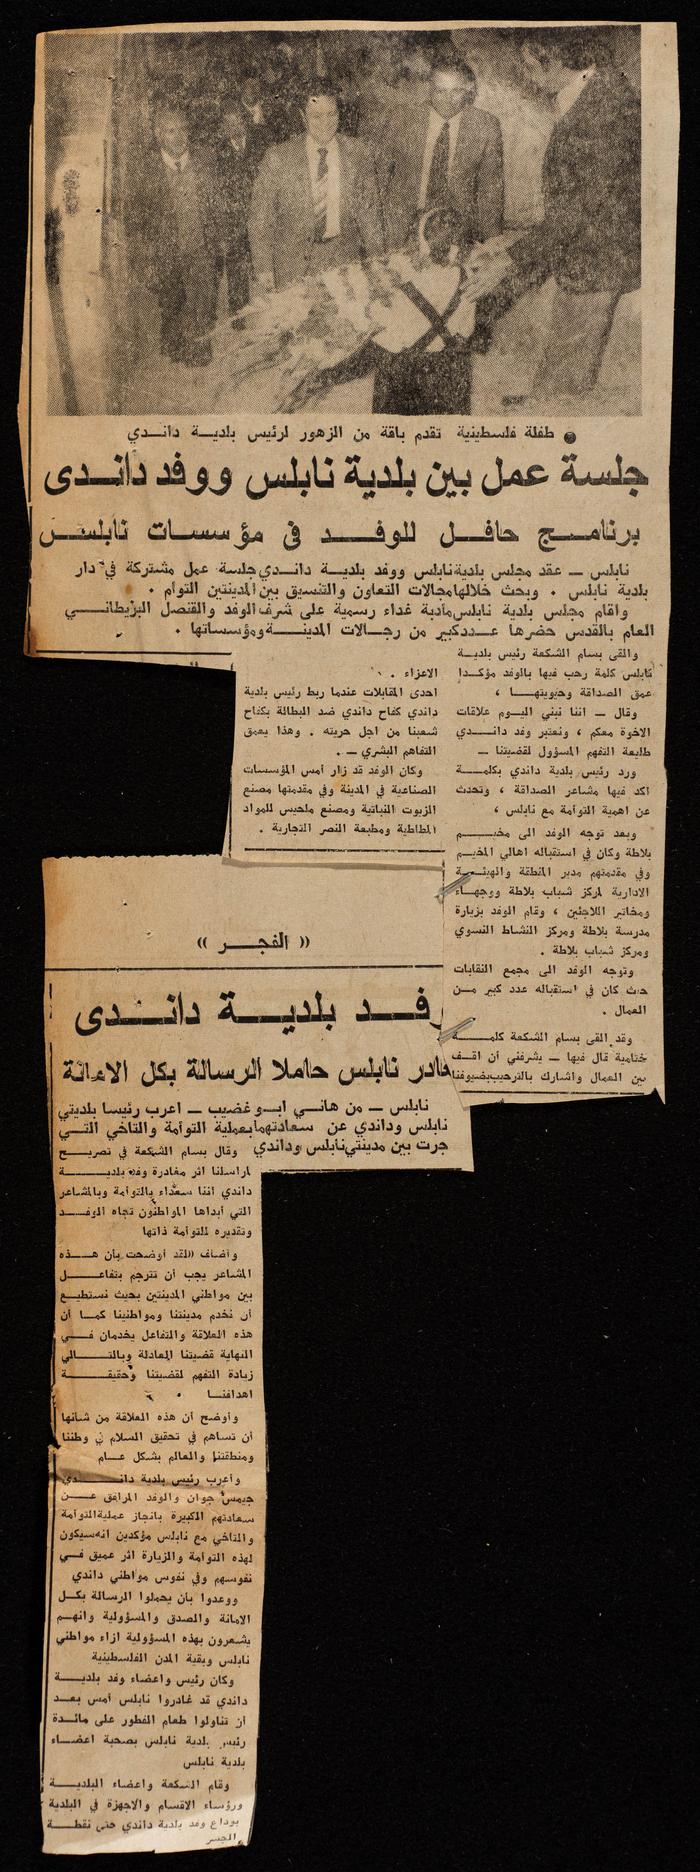 طفلة فلسطينية تقدم باقة من الزهور لرئيس بلديـــة دانــدي
جلسة عمل بين بلدية نابلس ووفد دانــدى
برنامــج حافــل للوفــد فى مؤسسات نابلســس
نابلس ــ عقد مجلس بلدية نابلس ووفد بلديــة دانــدي جلسة عمل مشتركة في دار
بلدية نابلس . وبحث خلالها مجالات التعاون والتنسيق بين المدينتين التوأم .
واقام مجلس بلدية نابلس مأدبة غداء رسمية على شرف الوفد والقنصل البريطانــي
العام بالقدس حضرها عــدد كبير من رجــالات المدينــة ومؤسساتها .
والقى بسام الشكعة رئيس بلديــة
نابلس كلمة رحب فيها بالوفد مؤكــدا
عمق الصداقة وحيويتهــا ،
وقال ــ اننا نبني اليــوم علاقات
الاخوة معكم ، ونعتبر وفد دانــدي
طليعة التفهم المسؤول لقضيتنا ــ
ورد رئيس بلدية داندي بكلمــة
اكد فيها مشاعر الصداقة ، وتحدث
عن اهمية التوأمة مع نابلس ،
وبعد توجه الوفد الى مخيــم
بلاطة وكان في استقباله اهالي المخيــم
وفي مقدمتهم مدير المنطقة والهيئــة
الادارية لمركز شباب بلاطة ووجهــاء
ومخاتير اللاجئين ، وقام الوفد بزيارة
مدرسة بلاطة ومركز النشاط النسوي
ومركز شباب بلاطة .
وتوجه الوفد الى مجمع النقابات
حيث كان في استقباله عدد كبير مــن
العمال .
وقد القى بسام الشكعة كلمــة
ختامية قال فيها ــ يشرفني أن اقــف
بين العمال واشارك بالترحيب بضيوفنا
الاعزاء .
احدى المقابلات عندما ربط رئيس بلدية
داندي كفاح داندي ضد البطالة بكفاح
شعبنا من اجل حريته . وهذا يعمق
التفاهم البشري ــ .
وكان الوفد قد زار أمس المؤسسات
الصناعية في المدينة وفي مقدمتها مصنع
الزيوت النباتية ومصنع ملحيس للمواد
المطاطية ومطبعة النصر التجارية .
(( الفجــر ))
وفــد بلديــة دانــدى
غادر نابلس حاملا الرسالة بكل الامانة
نابلس ــ من هانــي ابــو غضيب ــ اعرب رئيسا بلديتي
نابلس وداندي عن سعادتهما بعملية التوأمة والتآخي التــي
جرت بين مدينتي نابلس وداندي
وقال بسام الشكعة في تصريــح
لمراسلنا اثر مغادرة وفد بلديــة
داندي اننا سعداء بالتوأمة وبالمشاعر
التي أبداها المواطنون تجاه الوفــد
وتقديره للتوأمة ذاتها
وأضاف «لقد أوضحت بأن هــذه
المشاعر يجب أن تترجم بتفاعــل
بين مواطني المدينتين بحيث نستطيــع
أن نخدم مدينتنا ومواطنينا كمــا أن
هذه العلاقة والتفاعل يخدمان فــي
النهاية قضيتنا العادلة وبالتــالي
زيادة التفهم لقضيتنا وحقيقــة
اهدافنــا
وأوضح أن هذه العلاقة من شأنها
أن تساهم في تحقيق السلام في وطننا
ومنطقتنا والعالم بشكل عــام
وأعرب رئيس بلدية دانــدي
جيمس جوان والوفد المرافق عــن
سعادتهم الكبيرة بانجاز عملية التوأمة
والتآخي مع نابلس مؤكدين انه سيكون
لهذه التوأمة والزيارة اثر عميق فــي
نفوسهم وفي نفوس مواطني داندي
ووعدوا بأن يحملوا الرسالة بكــل
الامانة والصدق والمسؤولية وانهــم
يشعرون بهذه المسؤولية ازاء مواطني
نابلس وبقية المدن الفلسطينية
وكان رئيس واعضاء وفد بلديــة
داندي قد غادروا نابلس أمس بعــد
أن تناولوا طعام الفطور على مائــدة
رئيس بلدية نابلس بصحبة اعضــاء
بلدية نابلس
وقام الشكعة واعضاء البلديــة
ورؤساء الاقسام والاجهزة في البلدية
بوداع وفد بلدية داندي حتى نقطــة
الجسر